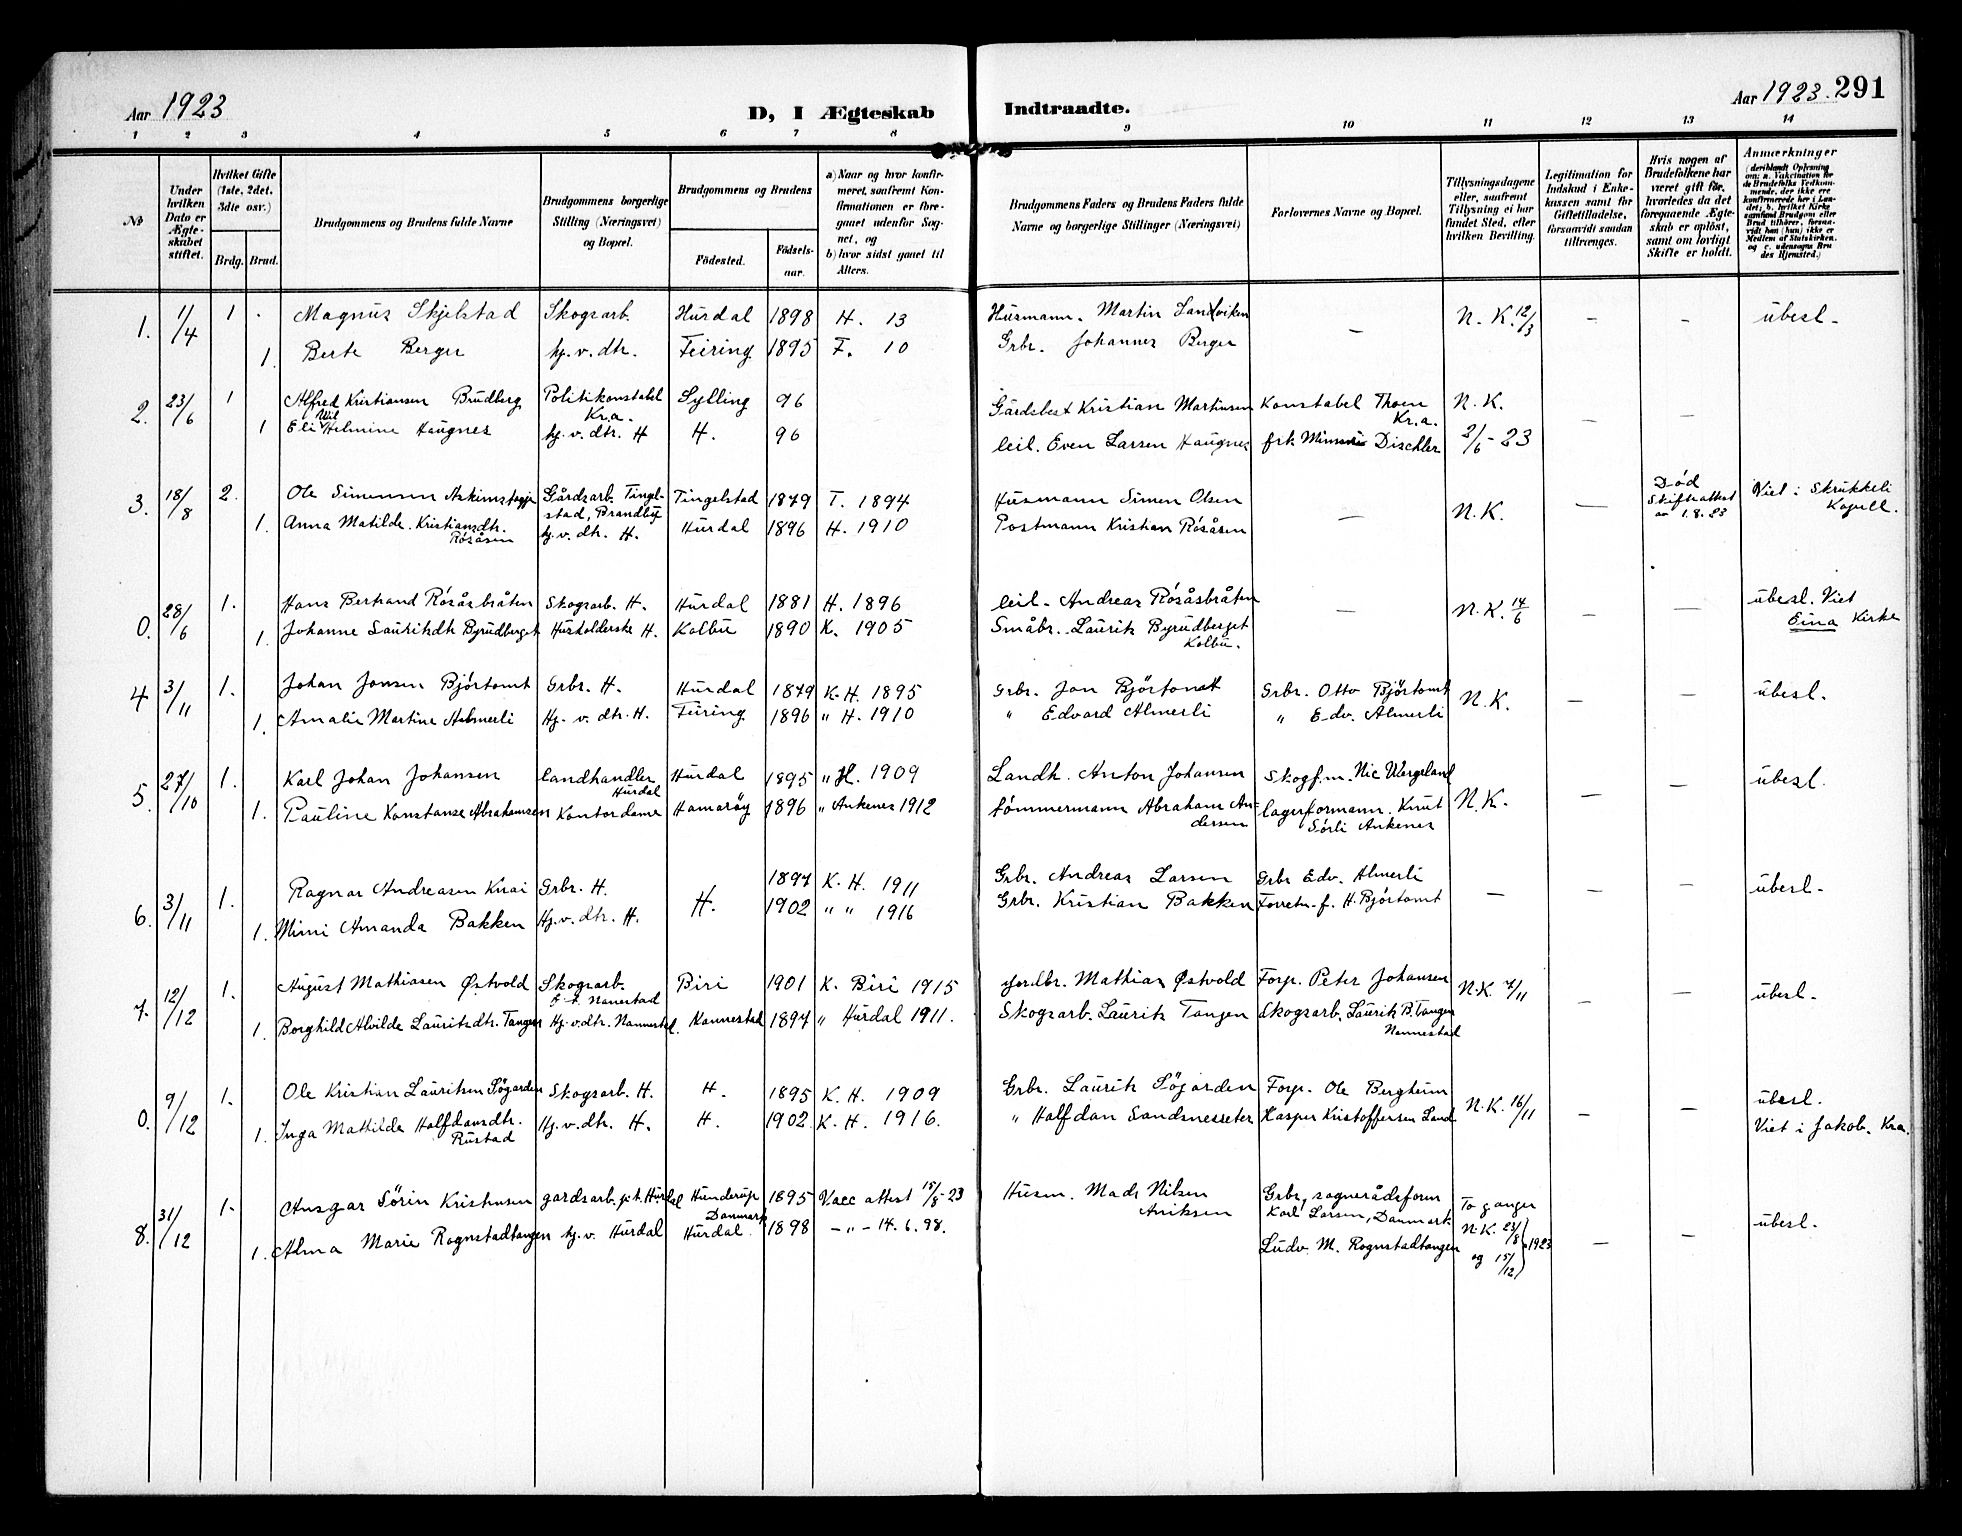 Aar 1923
D, I Ægteskab Indtraadte.
Aar 1923. 291
1 2 3 4 5 6 7 8 9 10 11 12 13 14
№
Under hvilken Dato er Ægteskabet stiftet.
Hvilket Gifte (1ste, 2det, 3die osv.)
Brdg. Brud.
Brudgommens og Brudens fulde Navne
Brudgommens borgerlige Stilling (Næringsvei) og Bopæl.
Brudgommens og Brudens
Fødested. Fødselsaar.
a) Naar og hvor konfirmeret, samfremt Konfirmationen er foregaaet udenfor Sognet, og
b) hvor sidst gaaet til Alters.
Brudgommens Faders og Brudens Faders fulde Navne og borgerlige Stillinger (Næringsvei)
Forlovernes Navne og Bopæl.
Tillysningsdagene eller, saafremt Tillysning ei har fundet Sted, efter hvilken Bevilling.
Legitimation for Indskud i Enkekassen samt for Giftetilladelse, forsaavidt saadan tiltrænges.
Hvis nogen af Brudefolkene har været gift før, hvorledes da det foregaaende Ægteskab er opløst, samt om lovligt Skifte er holdt.
Anmærkninger
(deriblandt Oplysning om: a. Vakcination for de Brudefolks Vedkommende, der ikke ere konfirmerede her i Landet; b. hvilket Kirkesamfund Brudgom eller Brud tilhører, forsaavidt han (hun) ikke er Medlem af Statskirken, og c. udensogns Brudes Hjemsted.)
1. 1/4 1 Magnus Skjelstad Skogsarb. Hurdal 1898 H. 13 Husmann. Martin Landviken — N. K. 12/3 — — ubesl.
1. Berte Berger hj. v. dtr. Feiring 1895 F. 10 Grbr. Johannes Berger
2. 23/6 1 Alfred Kristiansen Brudberg Politikonstabel Kr.a. Sylling 96 Gårdsbest Kristian Martinsen Konstabel Thoen Kr.a. N. K. 2/6-23 — —
1 Eli Wilhelmine Haugnes hj. v. dtr. H H. 96 leil. Even Larsen Haugnes frk. Dischler
3. 18/8 2. Ole Simensen Gårdsarb. Tingelstad, Brandbu Tingelstad 1879 T. 1894 Husmann Simen Olsen — N. K. — Død Skifteattest av 1.8.23 Viet i Skrukkeli Kapell.
1. Anna Matilde Kristiansdtr. Røsåsen hj. v. dtr. H. Hurdal 1896 H. 1910 Postmann Kristian Røsåsen
0. 28/6 1. Hans Bertrand Røsåsbråten Skogsarb. H. Hurdal 1881 H. 1896 leil. Andreas Røsåsbråten — N. K. 14/6 — — ubesl. Viet Eina Kirke
1. Johanne Lauritzdtr Byrudberget Husholderske H. Kolbu 1890 K. 1905 Småbr. Lauritz Byrudberget Kolbu.
4 3/11 1. Johan Jonsen Bjørtomt Grbr. H. Hurdal 1879 K. H. 1895 Grbr. Jon Bjørtomt Grbr. Otto Bjørtomt N. K. — — ubesl.
1. Amalie Martine Almerli Hj. v. dtr. H. Feiring 1896 " H. 1910 " Edvard Almerli " Edv. Almerli
5. 27/10 1. Karl Johan Johansen landhandler Hurdal Hurdal 1895 " H. 1909 Landh. Anton Johansen Skogf.m. Nic Wergeland N. K. — — ubesl.
1. Pauline Konstanse Abrahamsen Kontordame Hamarøy 1896 " Ankenes 1912 tømmermann Abraham Andersen lagerformann. Knut Sørli Ankenes
6. 3/11 1. Ragnar Andreasen Knai Grbr. H. H. 1897 K. H. 1911 Grbr. Andreas Larsen Grbr Edv. Almerli — — — ubesl.
1. Mimi Amanda Bakken Hj. v. dtr. H. 1902 " " 1916 Grbr. Kristian Bakken Forretn.f. H. Bjørtomt
7. 12/12 1. August Mathiasen Østvold Skogsarb. p. t. Nannestad Biri 1901 K. Biri 1915 Gårdbr. Mathias Østvold Forp. Peter Johansen N. K. 7/11 — — ubesl.
1. Borghild Alvilde Lauritzdtr. Tangen Hj. v. dtr. Nannestad. Nannestad 1897 " Hurdal 1911. Skogsarb. Lauritz Tangen Skogsarb. Lauritz B. Tangen Nannestad
0. 9/12 1. Ole Kristian Lauritzen Søgarden Skogsarb. H. H. 1895 K. H. 1909 Grbr. Lauritz Søgarden Forp. Ole Bergheim N. K. 16/11 — — ubesl. Viet i Jakob. Kra.
1. Inga Mathilde Halfdansdtr. Rustad Hj. v. dtr. H. H. 1902. K. H. 1916. " Halfdan Sandsnesseter Kasper Kristoffersen Land
8. 31/12 1. Ansgar Sørin Kristensen gardsarb. p.t. Hurdal Hunderup Danmark 1895 Vacc attest 15/8-23 Husm. Mads Nilsen Grbr, sognerådsform Karl Larsen, Danmark To ganger N. K. 23/8 og 15/12 1923 — — ubesl.
1. Alma Marie Rognstadtangen hj. v. Hurdal Hurdal 1898 — " — 14. 6. 98. Ludv. M. Rognstadtangen